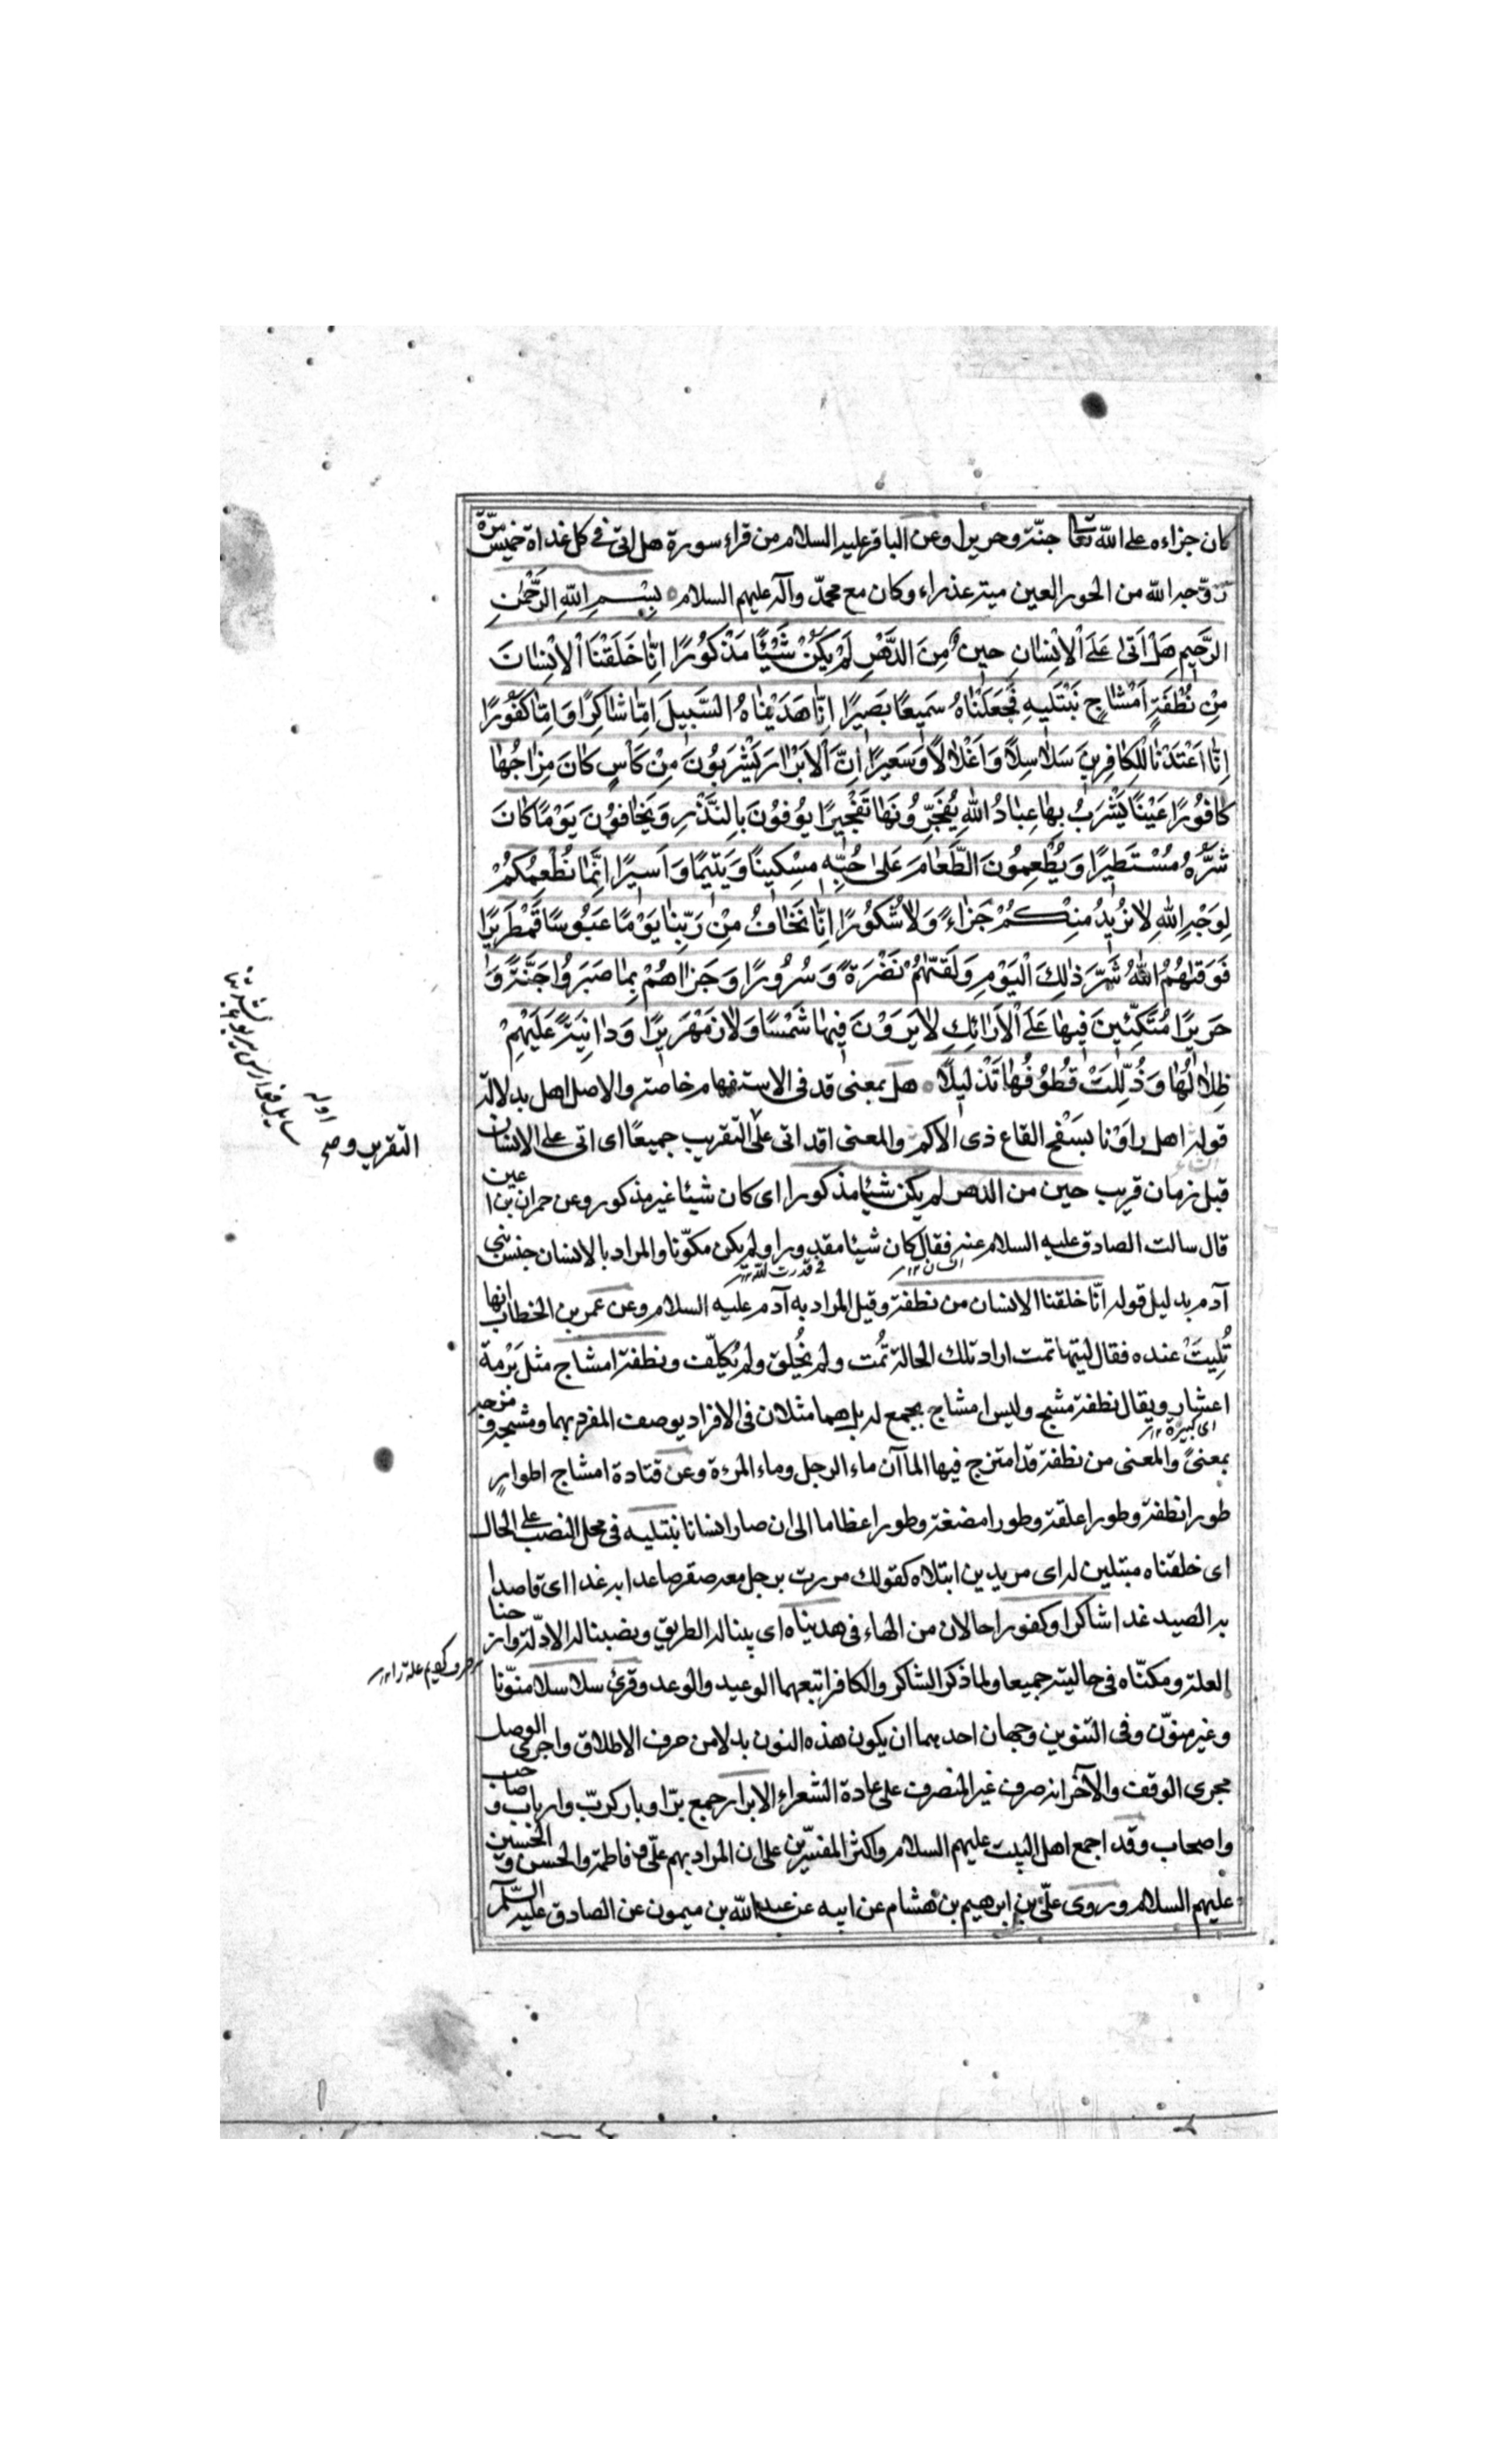 كان جزاءه على الله تعالى جنّة وحريرا وعن الباقر عليه السلام من قراء سورة هل اتى في كل غداة خميس مرّة
زوّجه الله من الحور العين مية عذراء وكان مع محمدّ وآله عليهم السلام بِسْمِ اللهِ الرَّحْمٰنِ
الرَّحيمِ هَلْ اَتىٰ عَلَى الْاِنْسٰانِ حينٌ مِنَ الدَّهْرِ لَمْ يَكُنْ شَيْئًا مَذْكوُرًا اِنّٰا خَلَقْنَا الْاِنْسٰانَ
مِنْ نُطْفَةٍ اَمْشٰاجٍ نَبْتَليهِ فَجَعَلْنٰاهُ سَميعًا بَصيرًا اِنّٰا هَدَيْنٰاهُ السَّبيلَ اِمّٰا شٰاكِرًا وَاِمّٰا كَفوُرًا
اِنّٰا اَعْتَدْنٰا لِلْكٰافِرينَ سَلٰاسِلًا وَاَغْلٰالًا وَسَعيرًا اِنَّ الْاَبْرٰارَ يَشْرَبوُنَ مِنْ كَأْسٍ كٰانَ مِزٰاجُهٰا
كٰافوُرًا عَيْنًا يَشْرَبُ بِهٰا عِبٰادُ اللهِ يُفَجِّروُنَهٰا تَفْجيرًا يوُفوُنَ بِالنَّذْرِ وَيَخٰافوُنَ يَوْمًا كٰانَ
شَرُّهُ مُسْتَطيرًا وَيُطْعِموُنَ الطَّعٰامَ عَلىٰ حُبِّهِ مِسْكينًا وَيَتيمًا وَاَسيرًا اِنَّمٰا نُطْعِمُكُمْ
لِوَجْهِ اللهِ لٰا نُريدُ مِنْكُمْ جَزٰاءً وَلٰا شُكوُرًا اِنّٰا نَخٰافُ مِنْ رَبِّنٰا يَوْمًا عَبوُسًا قَمْطَريرًا
فَوَقٰهُمُ اللهُ شَرَّ ذٰلِكَ الْيَوْمِ وَلَقّٰهُمْ نَضْرَةً وَسُروُرًا وَجَزٰاهُمْ بِمٰا صَبَروُا جَنَّةً وَ
حَريرًا مُتَّكِئينَ فيهٰا عَلَى الْاَرٰائِكِ لٰا يَرَوْنَ فيهٰا شَمْسًا وَلٰا زَمْهَريرًا وَدٰانِيَةً عَلَيْهِمْ
ظِلٰالُهٰا وَذُلِّلَتْ قُطوُفُهٰا تَذْليلًا هل بمعنى قد فى الاستفهام خاصة والاصل اهل بدلالة
قوله اهل راَوْنا بسَفْح القاع ذى الاكم والمعنى اقد اتى على التقريب جميعًا اى اتى على الانسان
التقرير و صح
قبل زمان قريب حين من الدهر لم يكن شيئا مذكورا اى كان شيئا غير مذكور وعن حمران بن اعين
قال سالت الصادق عليه السلام عنه فقال كان شيئا مقدورا ولم يكن مكوّنا والمراد بالانسان جنس بني
آدم بدليل قوله انّا خلقنا الانسان من نطفة وقيل المراد به آدم عليه السلام وعن عمر بن الخطاب انها
تُليتْ عنده فقال ليتها تمت اراد تلك الحالة تمّت ولم يُخلق ولم يُكلّف ونطفة امشاج مثل بَرْمة
اعشار ويقال نطفة مشج وليس امشاج بجمع له بل هما مثلان فى الافراد يوصف المفرد بهما ومشجه ومزجه
اى كبيرة ١٢
بمعنىً والمعنى من نطفة قد امتزج فيها الماآن ماء الرجل وماء المرءة وعن قتادة امشاج اطوارٍ
طورا نطفة وطورا علقة وطورا مضغة وطورا عظاما الى ان صار انسانا نبتليه فى محل النصب على الحال
اى خلقناه مبتلين له اى مريدين ابتلاه كقولك مررت برجل معه صقر صاعدا به غدا اى قاصدا
به الصيد غدا شاكرا وكفورا حالان من الهاء فى هديناه اى بينا له الطريق ونصبنا له الادلّة وازحنا
العلة ومكنّاه فى حاليته جميعا ولما ذكر الشاكر والكافر اتبعهما الوعيد والوعد وقرئ سلاسلا منوّنا
وغير منوّن وفى التنوين وجهان احدهما ان يكون هذه النون بدلا من حرف الاطلاق واجرى الوصل
مجرى الوقف والآخر انه صرف غير المنصرف على عادة الشعراء الابرار جمع برّ او بار كربّ وارباب وصاحب
واصحاب وقد اجمع اهل البيت عليهم السلام واكثر المفسّرين على ان المراد بهم علّى وفاطمة والحسن والحسين
عليهم السلام وروى علّى بن ابرهيم بن هشام عن ابيه عن عبد الله بن ميمون عن الصادق عليه السّلم